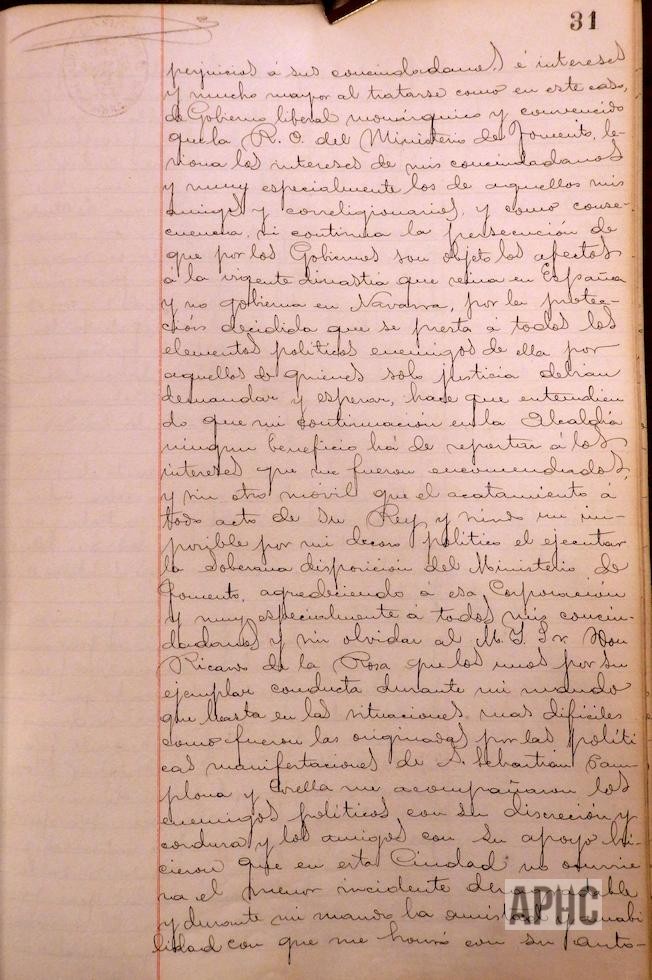 31
perjuicios á sus conciudadanos, é intereses
y mucho mayor al tratarse como en este caso,
de Gobierno liberal monárquico y convencido
que la R. O. del Ministerio de Fomento, le-
siona los intereses de mis conciudadanos
y muy especialmente los de aquellos mis
amigos y correligionarios, y como conse-
cuencia, si continua la persecución de
que por los Gobiernos son objeto los afectos
á la vigente dinastia que reina en España
y no gobierna en Navarra, por la protec-
ción decidida que se presta á todos los
elementos políticos enemigos de ella por
aquellos de quienes solo justicia debian
demandar y esperar, hace que entendien
do que mi continuación en la Alcaldía
ningun beneficio há de reportar á los
intereses que me fueron encomendados,
y sin otro móvil que el acatamiento á
todo acto de su Rey y siendo me im-
posible por mi decoro político el ejecutar
la soberana disposición del Ministerio de
Fomento, agradeciendo á esa Corporación
y muy especialmente á todos mis conciu-
dadanos y sin olvidar al M. I. Sr. Don
Ricardo de la Rosa que los unos por su
ejemplar conducta durante mi mando
que hasta en las situaciones mas dificiles
como fueron las originadas por las politi
cas manifestaciones de S. Sebastian Pam-
plona y Corella me acompañaron los
enemigos políticos, con su discreción y
cordura y los amigos con su apoyo hi-
cieron que en esta Ciudad no ocurrie
ra el menor incidente
y durante mi mando la amistad y amabi
lidad con que me honró con su auto-
APHC